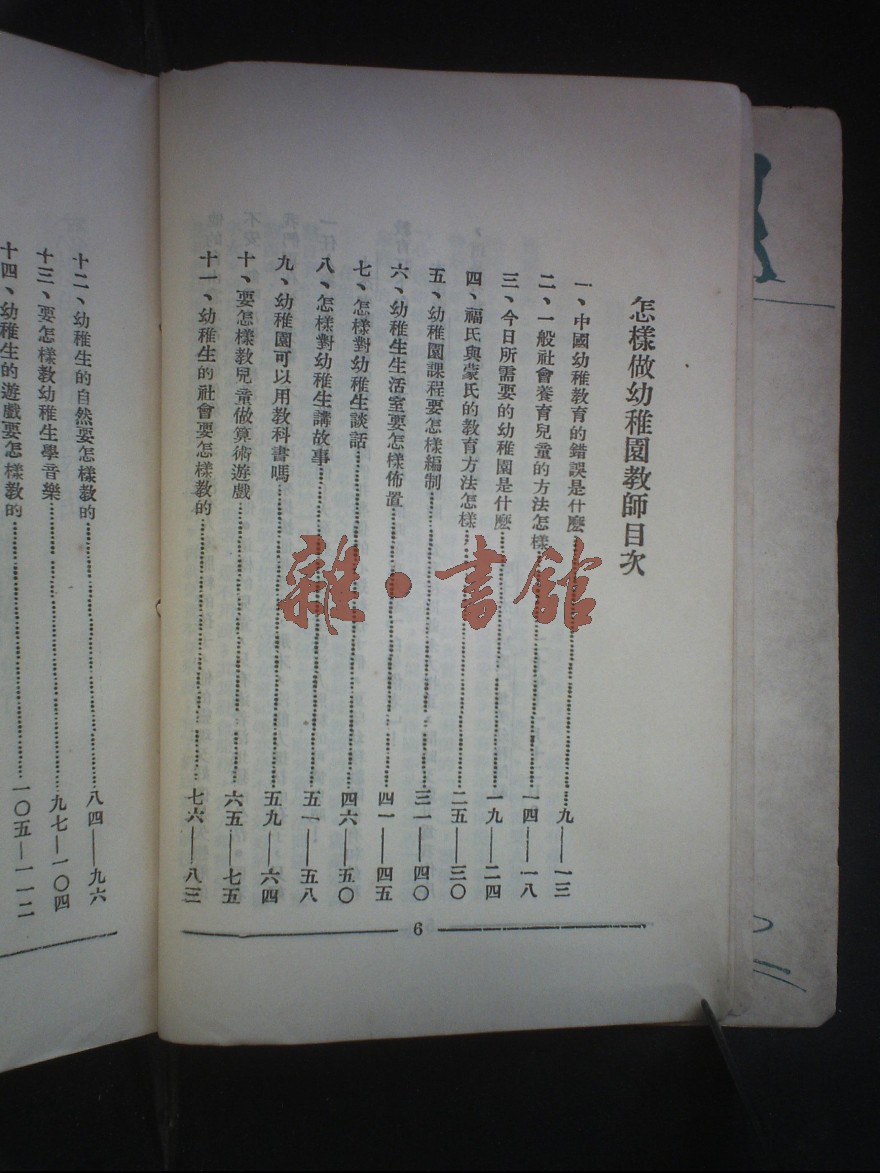 怎樣做幼稚園教師目次
一、中國幼稚教育的錯誤是什麽……九——一三
二、一般社會養育兒童的方法怎樣……一四——一八
三、今日所需要的幼稚園是什麽……一九——二四
四、福氏與蒙氏的教育方法怎樣……二五——三〇
五、幼稚園課程要怎樣編制……三一——四〇
六、幼稚生生活室要怎樣佈置……四一——四五
七、怎樣對幼稚生談話……四六——五〇
八、怎樣對幼稚生講故事……五一——五八
九、幼稚園可以用教科書嗎……五九——六四
十、要怎樣教兒童做算術遊戲……六五——七五
十一、幼稚生的社會要怎樣教的……七六——八三
6
十二、幼稚生的自然要怎樣教的……八四——九六
十三、要怎樣教幼稚生學音樂……九七——一〇四
十四、幼稚生的遊戲要怎樣教的……一〇五——一一二
雜·書館